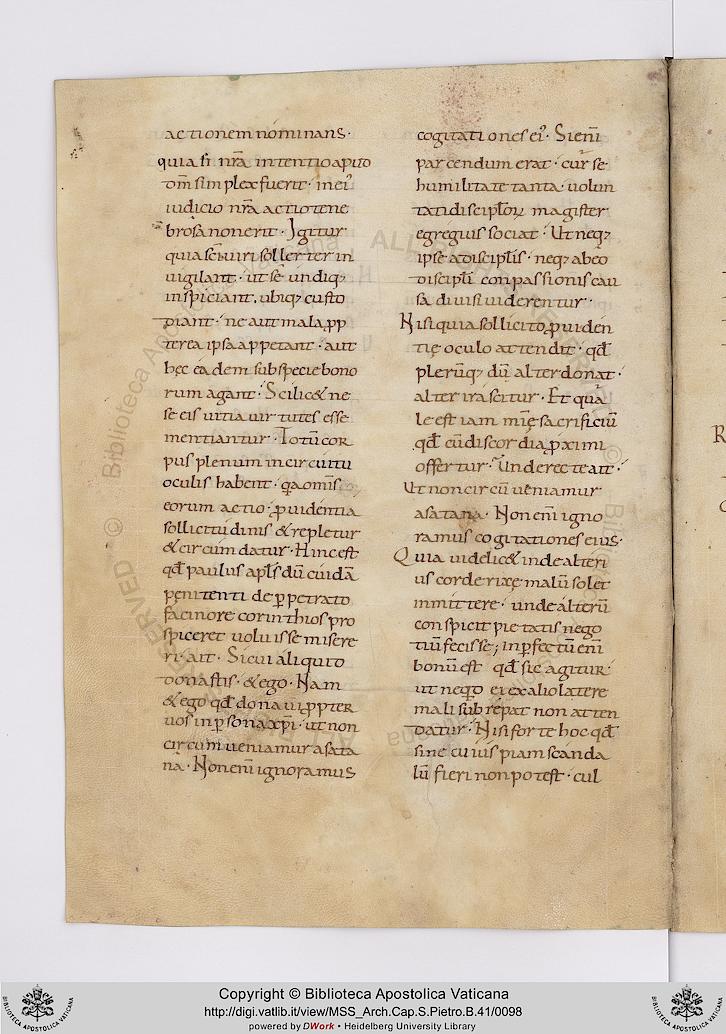 actionem nominans·
quia si nr̄a intentio apud
om̄s implex fuerit· in ei᷒
iudicio nr̄a actio tene
brosa non erit· Igitur
quia sc̄i uiri sollerter in
uigilant· ut se undiq;
inspiciant, ubiq; custo
diant· ne aut mala ꝓp
ter ea ipsa appetant· aut
hęc eadem sub specie bono
rum agant· Scilic& ne
se eis uitia uirtutes esse
mentiantur· Totū cor
pus plenum in circuitu
oculis habent· q̄a om̄is
eorum actio ꝓuidentia
sollicitudinis & repletur
& circumdatur· Hinc est
qđ paulus apl̄s dū cuidā
penitenti de ꝑpetrato
facinore corinthios pro
spiceret uoluisse misere
ri· ait· Si cui aliquid
donastis· & ego· Nam
& ego qđ donaui ꝓpter
uos in ꝑsona xp̄i· ut non
circumueniamur a sata
na· Non enī ignoramus
cogitationes ei᷒· Si enī
parcendum erat· cur se
humilitate tanta uolun
tati discipl̄oꝝ magister
egregius sociat· Ut neq;
ipse a discipl̄is· neq; ab eo
discipl̄i conpassionis cau
sa diuisi uiderentur·
Nisi quia sollicito ꝓuiden
tię oculo attendit· qđ
plerūq; dū alter donat·
alter irascitur· Et qua
le est iam mn̄tę sacrificiū
qđ cū discordia ꝓximi
offertur· Unde recte ait·
Ut non circūueniamur
a satana· Non enī igno
ramus cogitationes eius·
Quia uidelic& inde alteri
us corde rixę malū solet
inmittere· unde alterū
conspicit pietatis nego
tiū fecisse; inꝑfectū enī
bonū est qđ sic agitur
ut neq̄d ei ex alio latere
mali subrepat non atten
datur· Nisi forte hoc qđ
sine cuius piam scanda
lū fieri non potest· cul
Copyright © Biblioteca Apostolica Vaticana
http://digi.vatlib.it/view/MSS_Arch.Cap.S.Pietro.B.41/0098
powered by DWork • Heidelberg University Library